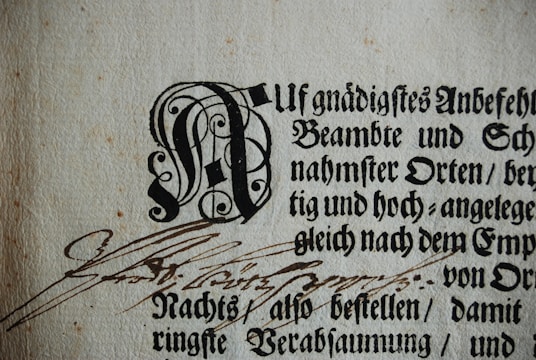 AUf gnädigstes Anbefehl
Beambte und Sch
nahmster Orten/ bey
tig und hoch⸗angelege
gleich nach dem Emp
von Or
Nachts/ also bestellen/ damit
ringste Verabsaumung/ und